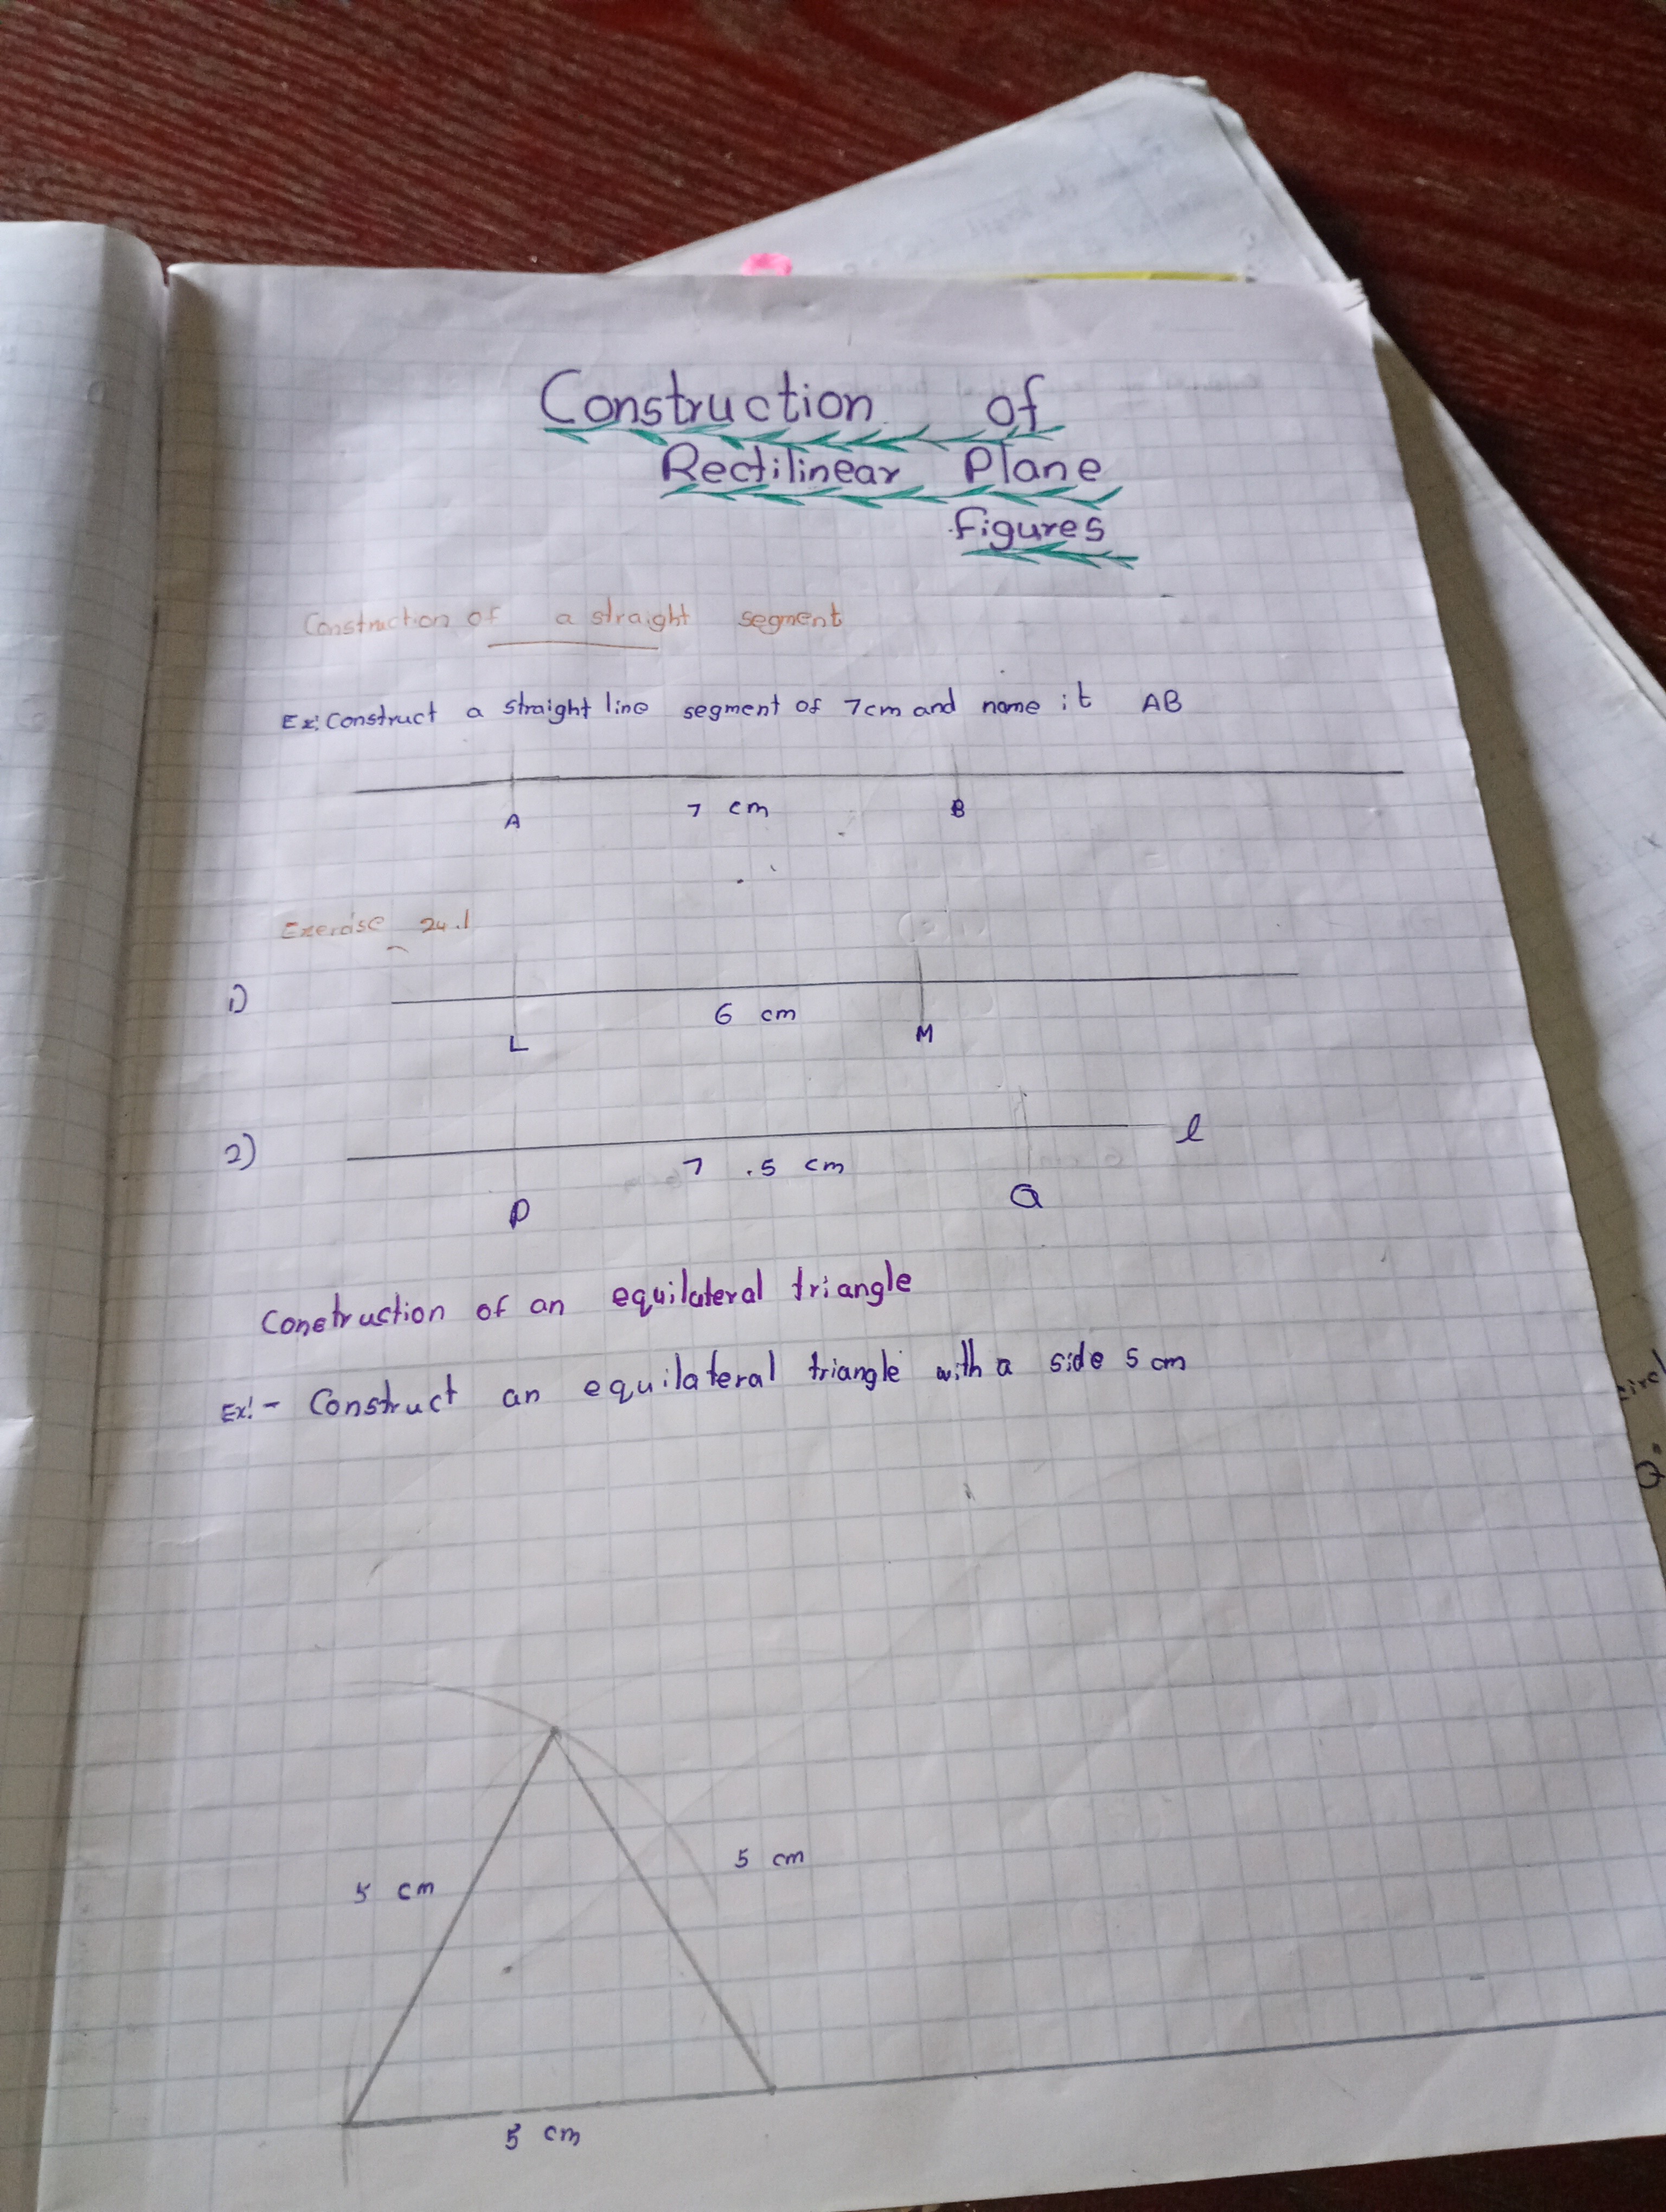 Construction of
Rectilinear Plane
Figures
Construction of a straight segment
Ex: Construct a straight line segment of 7cm and name it AB
A 7 cm B
Exercise 24.1
1)
6 cm
L M
2) l
7 .5 cm
P Q
Construction of an equilateral triangle
Ex:- Construct an equilateral triangle with a side 5 cm
5 cm
5 cm
5 cm